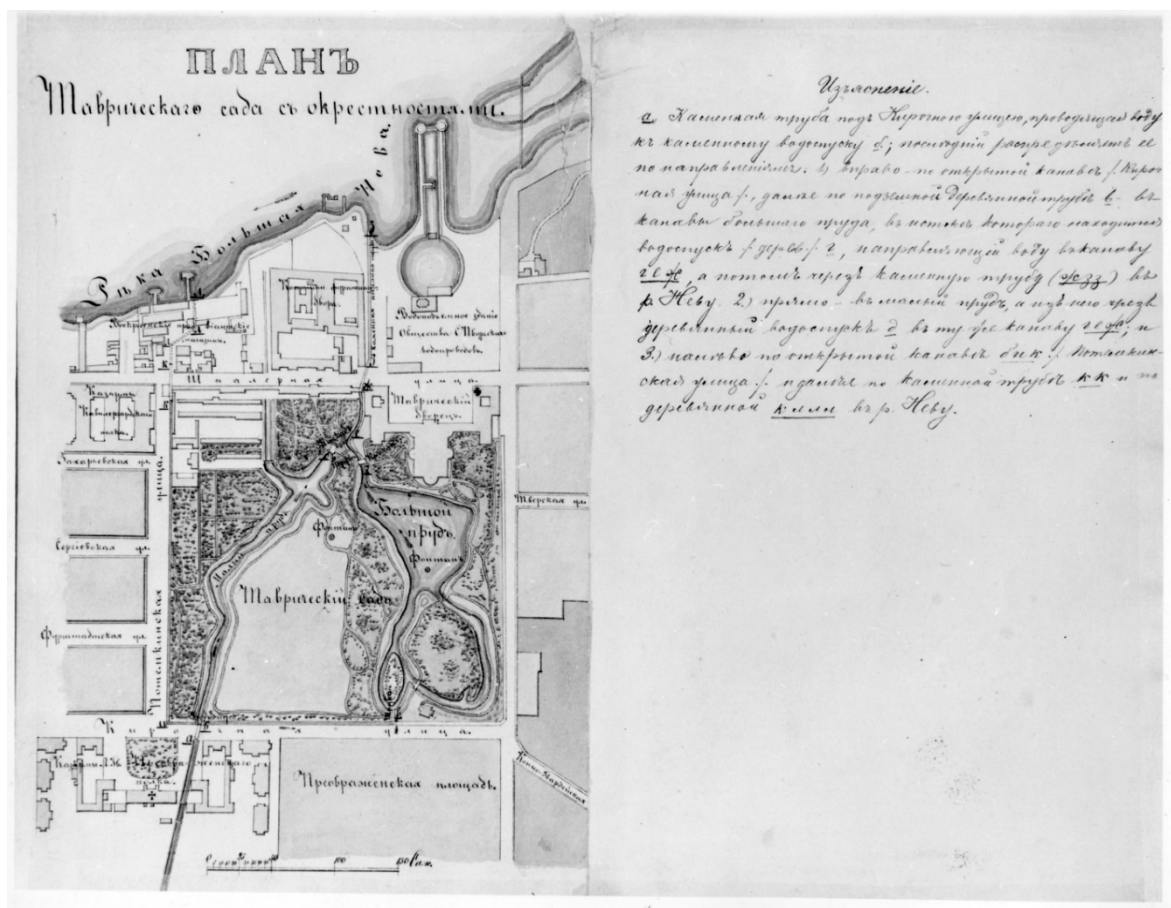 ПЛАНЪ
Таврическаго сада съ окрестностями.
Рѣка Большая Нева.
Воскресенскіе провіантскіе
магазины.
дворъ.
Водоподъемное зданіе
Общества С.Пбургскихъ
водопроводовъ.
Шпалерная улица.
Казармы
Кавалергардскаго
полка.
Таврическій
Дворецъ.
Захарьевская ул.
Тверская ул.
Сергіевская ул.
Фурштадтская ул.
Потемкинская улица.
Малый прудъ
Фонтанъ
Большой
прудъ.
Фонтанъ
Таврическій садъ
Кирочная улица.
Казармы Л.Гв. Преображенскаго
полка.
Преображенская площадь.
Конно-Гвардейская
100 150 Саж.
Изъясненіе.
а Каменная труба подъ Кирочною улицею, проводящая воду
къ каменному водоспуску б; послѣдній распредѣляетъ ее
по направленіямъ: 1) вправо - по открытой канавѣ /. Кироч-
ная улица /., далѣе по подземной деревянной трубѣ в - въ
канавы большаго пруда, въ истокѣ котораго находится
водоспускъ /. дерев. /. г, направляющій воду въ канаву
г е ж, а потомъ чрезъ каменную трубу (ж з з) въ
р. Неву. 2) прямо - въ малый прудъ, а изъ него чрезъ
деревянный водоспускъ д въ ту же канаву г е ж; и
3) налѣво по открытой канавѣ б и к /. Потемкин-
ская улица /. и далѣе по каменной трубѣ к к и по
деревянной к л л л въ р. Неву.